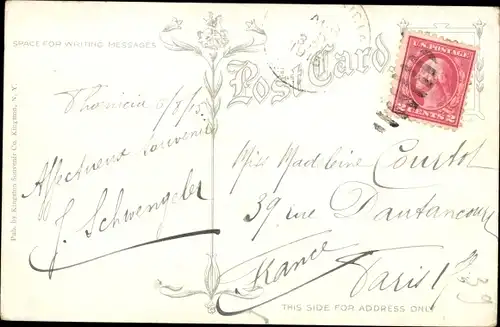 SPACE FOR WRITING MESSAGES
Post Card
U.S. POSTAGE
2 CENTS 2
Pub. by Kingston Souvenir Co. Kingston, N. Y.
Phoenicia 5/8/15
Affectueux souvenir
J. Schwengeler
Miss Madleine Courtot
39 rue Dautancourt
France Paris 17
39
THIS SIDE FOR ADDRESS ONLY